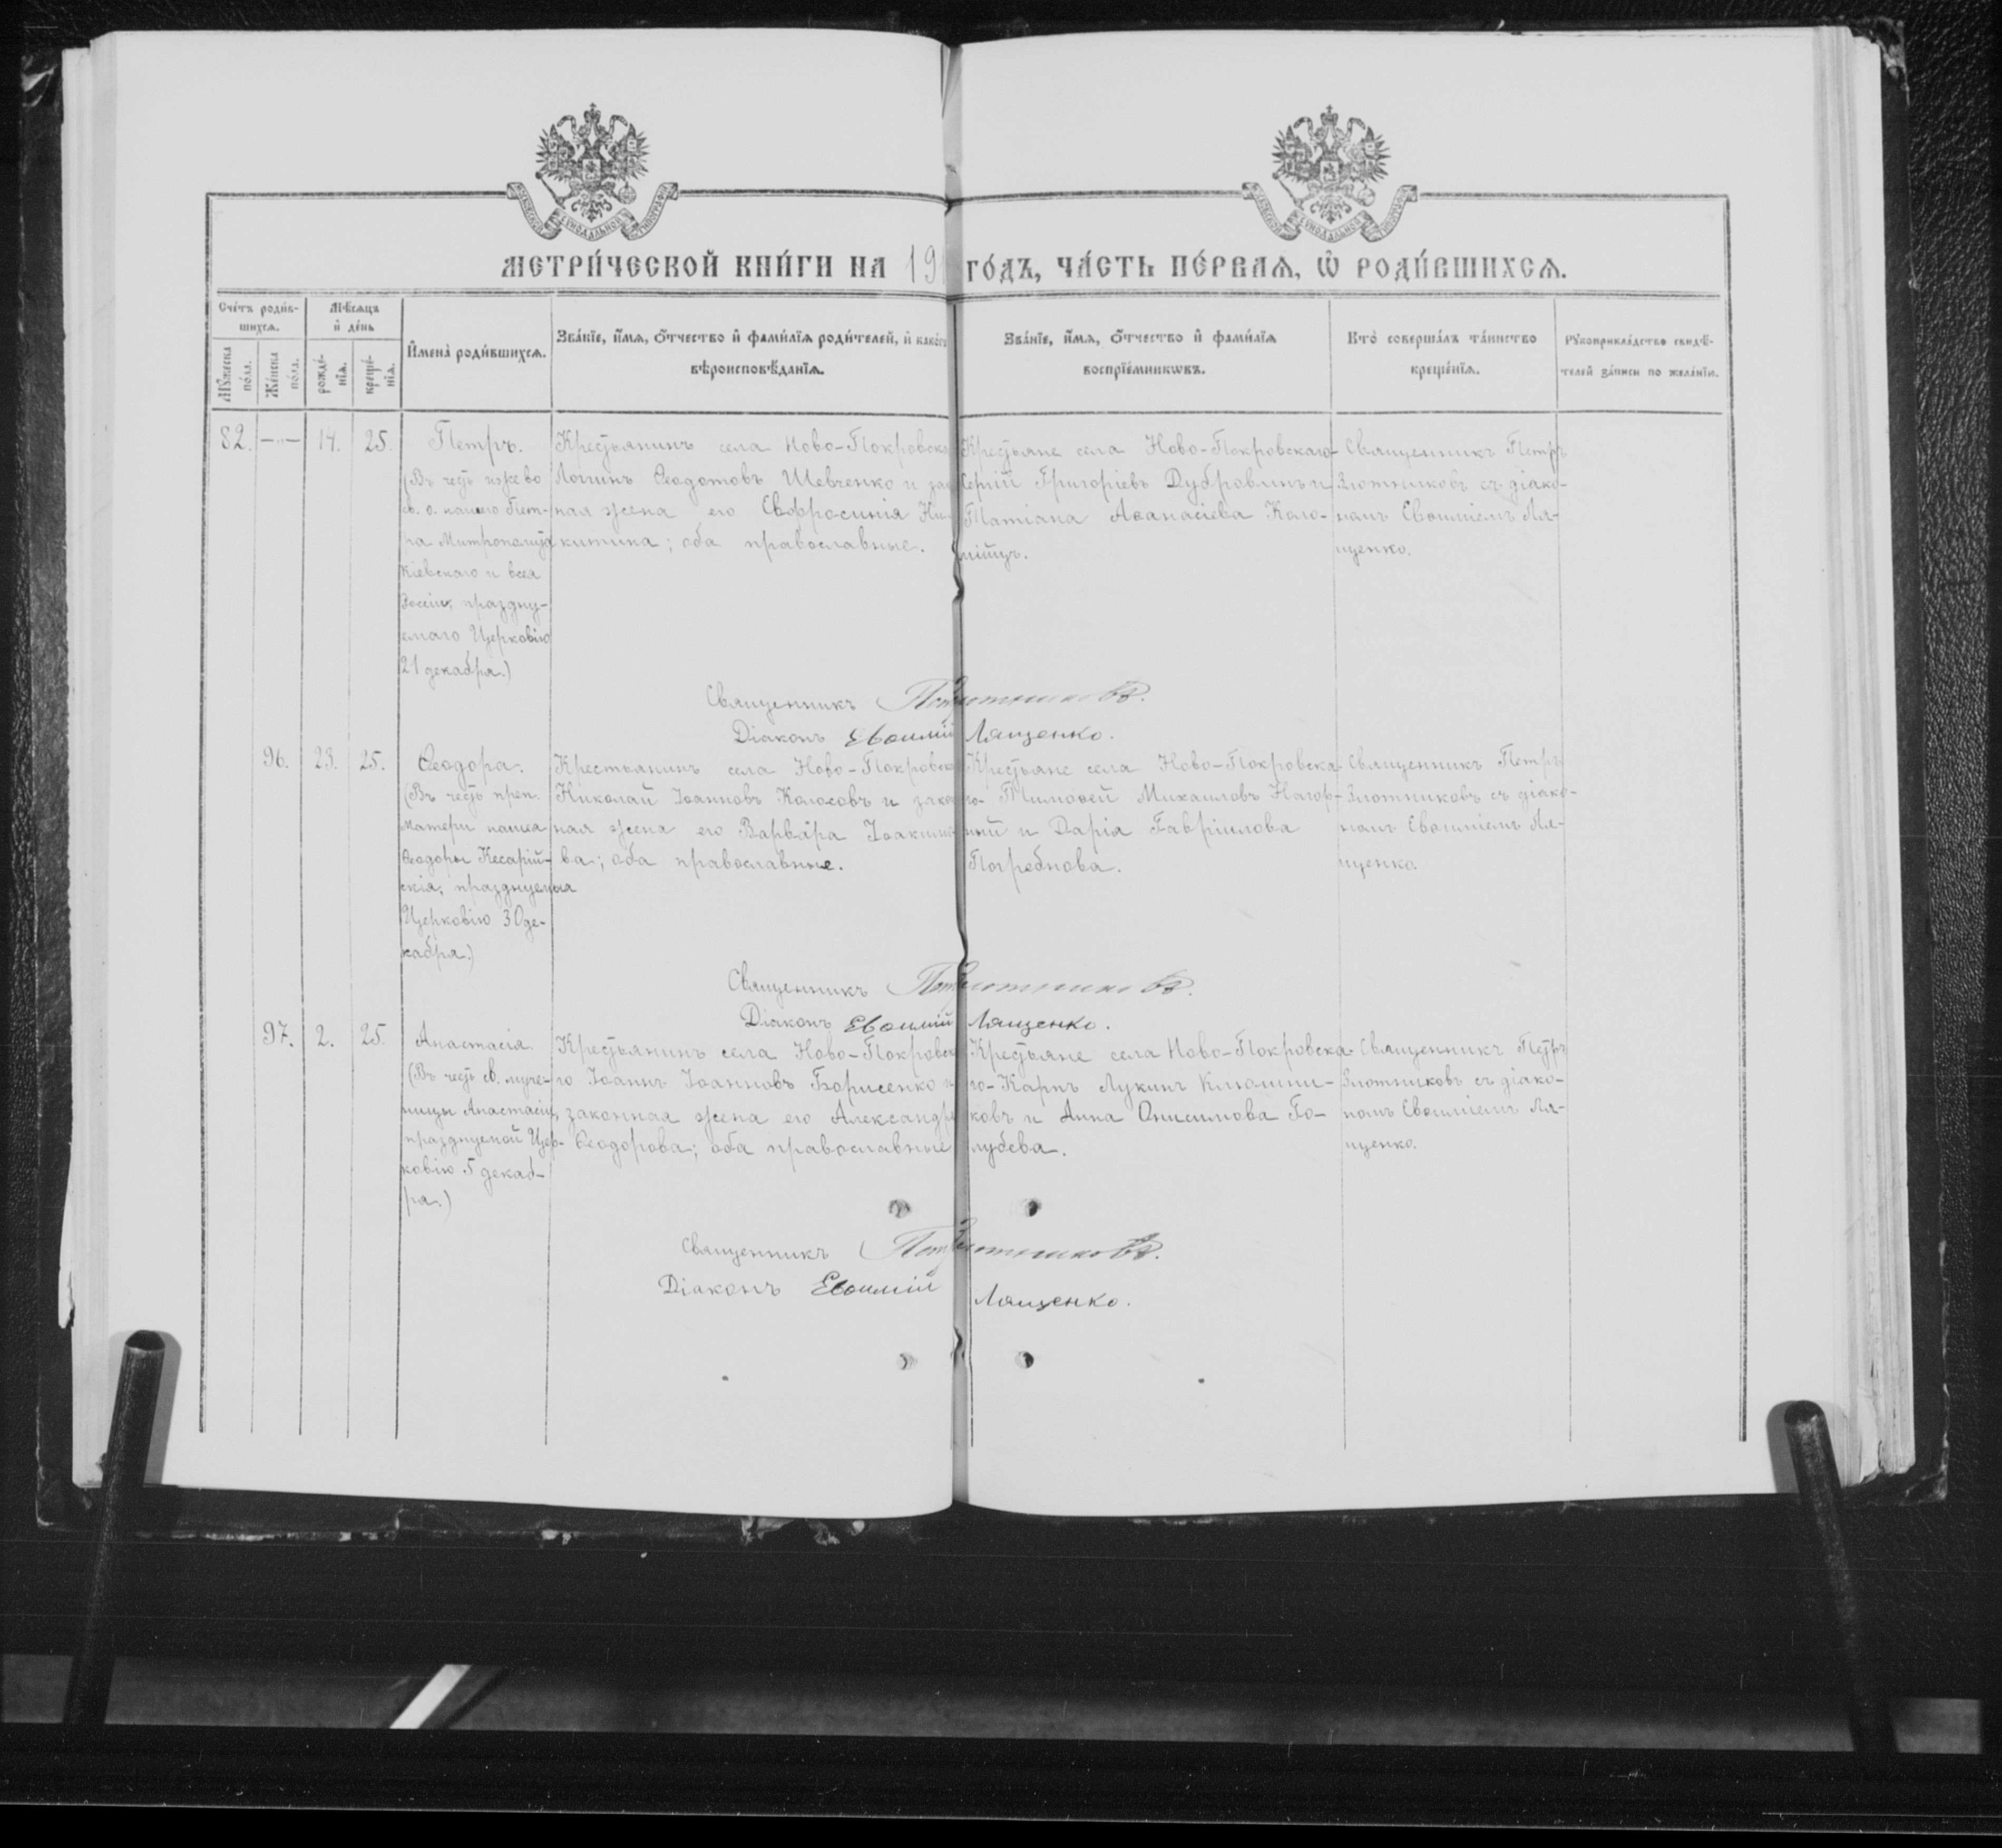 МЕТРИ́ЧЕСКОЙ КНИ́ГИ НА 191 ГО́ДЪ, ЧА́СТЬ ПЕ́РВАЯ, Ѡ҆ РОДИ́ВШИХСЯ.
Сче́тъ роди́в-
шихся.
Мѣ́сяцъ
и҆ де́нь
Мꙋ́жеска
по́ла.
Же́нска
по́ла.
рожде́-
нїя.
креще́-
нїя.
И҆мена̀ роди́вшихся.
Зва́нїе, и҆́мя, ѻ҆́тчество и҆ фами́лїя роди́телей, и҆ како́гѡ
вѣроисповѣ́данїя.
Зва́нїе, и҆́мя, ѻ҆́тчество и҆ фами́лїя
воспрїе́мникѡвъ.
Кто̀ соверша́лъ та́инство
креще́нїя.
Рꙋкоприкла́дство свидѣ́-
телей за́писи по жела́нїю.
82. —"— 14. 25.
Петръ.
(Въ честь иже во
св. о. нашего Пет-
ра Митрополита
Кіевскаго и всея
Россіи, праздну-
емаго Церковію
21 декабря.)
Крестьянинъ села Ново-Покровска
Логинъ Ѳеодотовъ Шевченко и зак
ная жена его Евфросинія Ни-
китина; оба православные.
Крестьяне села Ново-Покровскаго-
Сергій Григоріевъ Дубровинъ и
Татіана Аѳанасіева Коло-
Священникъ Петръ
Злотниковъ съ діако-
номъ Евѳиміемъ Ля-
щенко.
Священникъ Петръ Злотниковъ.
Діаконъ Евѳимій Лященко.
96. 23. 25.
Ѳеодора.
(Въ честь преп.
Матери нашея
Ѳеодоры Кесарій-
скія, празднуемыя
Церковію 30 де-
кабря.)
Крестьянинъ села Ново-Покровска
Николай Іоанновъ Колосовъ и закон
ная жена его Варвара Іоакимо-
ва; оба православные.
Крестьяне села Ново-Покровска-
го- Тимоѳей Михаиловъ Нагор-
ный и Дарія Гавріилова
Погребнова.
Священникъ Петръ
Злотниковъ съ діако-
номъ Евѳиміемъ Ля-
щенко.
Священникъ Петръ Злотниковъ.
Діаконъ Евѳимій Лященко.
97. 2. 25.
Анастасія.
(Въ честь св. муче-
ницы Анастасіи,
празднуемой Цер-
ковію 5 декаб-
ря.)
Крестьянинъ села Ново-Покровска
го Іоаннъ Іоанновъ Борисенко и
законная жена его Александра
Ѳеодорова; оба православные
Крестьяне села Ново-Покровска-
го-Карпъ Лукинъ Ключни-
ковъ и Анна Онисимова Го-
лубева.
Священникъ Петръ
Злотниковъ съ діако-
номъ Евѳиміемъ Ля-
щенко.
Священникъ Петръ Злотниковъ.
Діаконъ Евѳимій Лященко.